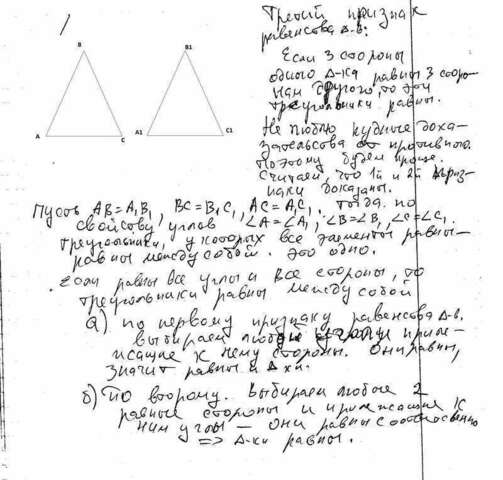 Третий признак
равенства Δ-в:
Если 3 стороны
одного Δ-ка равны 3 сторо-
нам другого, то эти
треугольники равны.
B
B1
A
C
A1
C1
Не люблю нудные дока-
зательсва от противного.
Поэтому будем проще.
Считаем, что 1й и 2й приз-
наки доказаны.
Пусть AB=A₁B₁, BC=B₁C₁, AC=A₁C₁. Тогда по
свойсву углов ∠A=∠A₁, ∠B=∠B₁, ∠C=∠C₁.
треугольники, у которых все элементы равны-
равны между собой. Это одно.
Если равны все углы и все стороны, то
треугольники равны между собой
а) по первому признаку равенсва Δ-в.
выбираем любой и приле-
жащие к нему стороны. Они равны,
значит равны и Δ-ки.
б) По второму. Выбираем любые 2
равные стороны и прилежащие к
ним углы – они равны соответсвенно
=> Δ-ки равны.